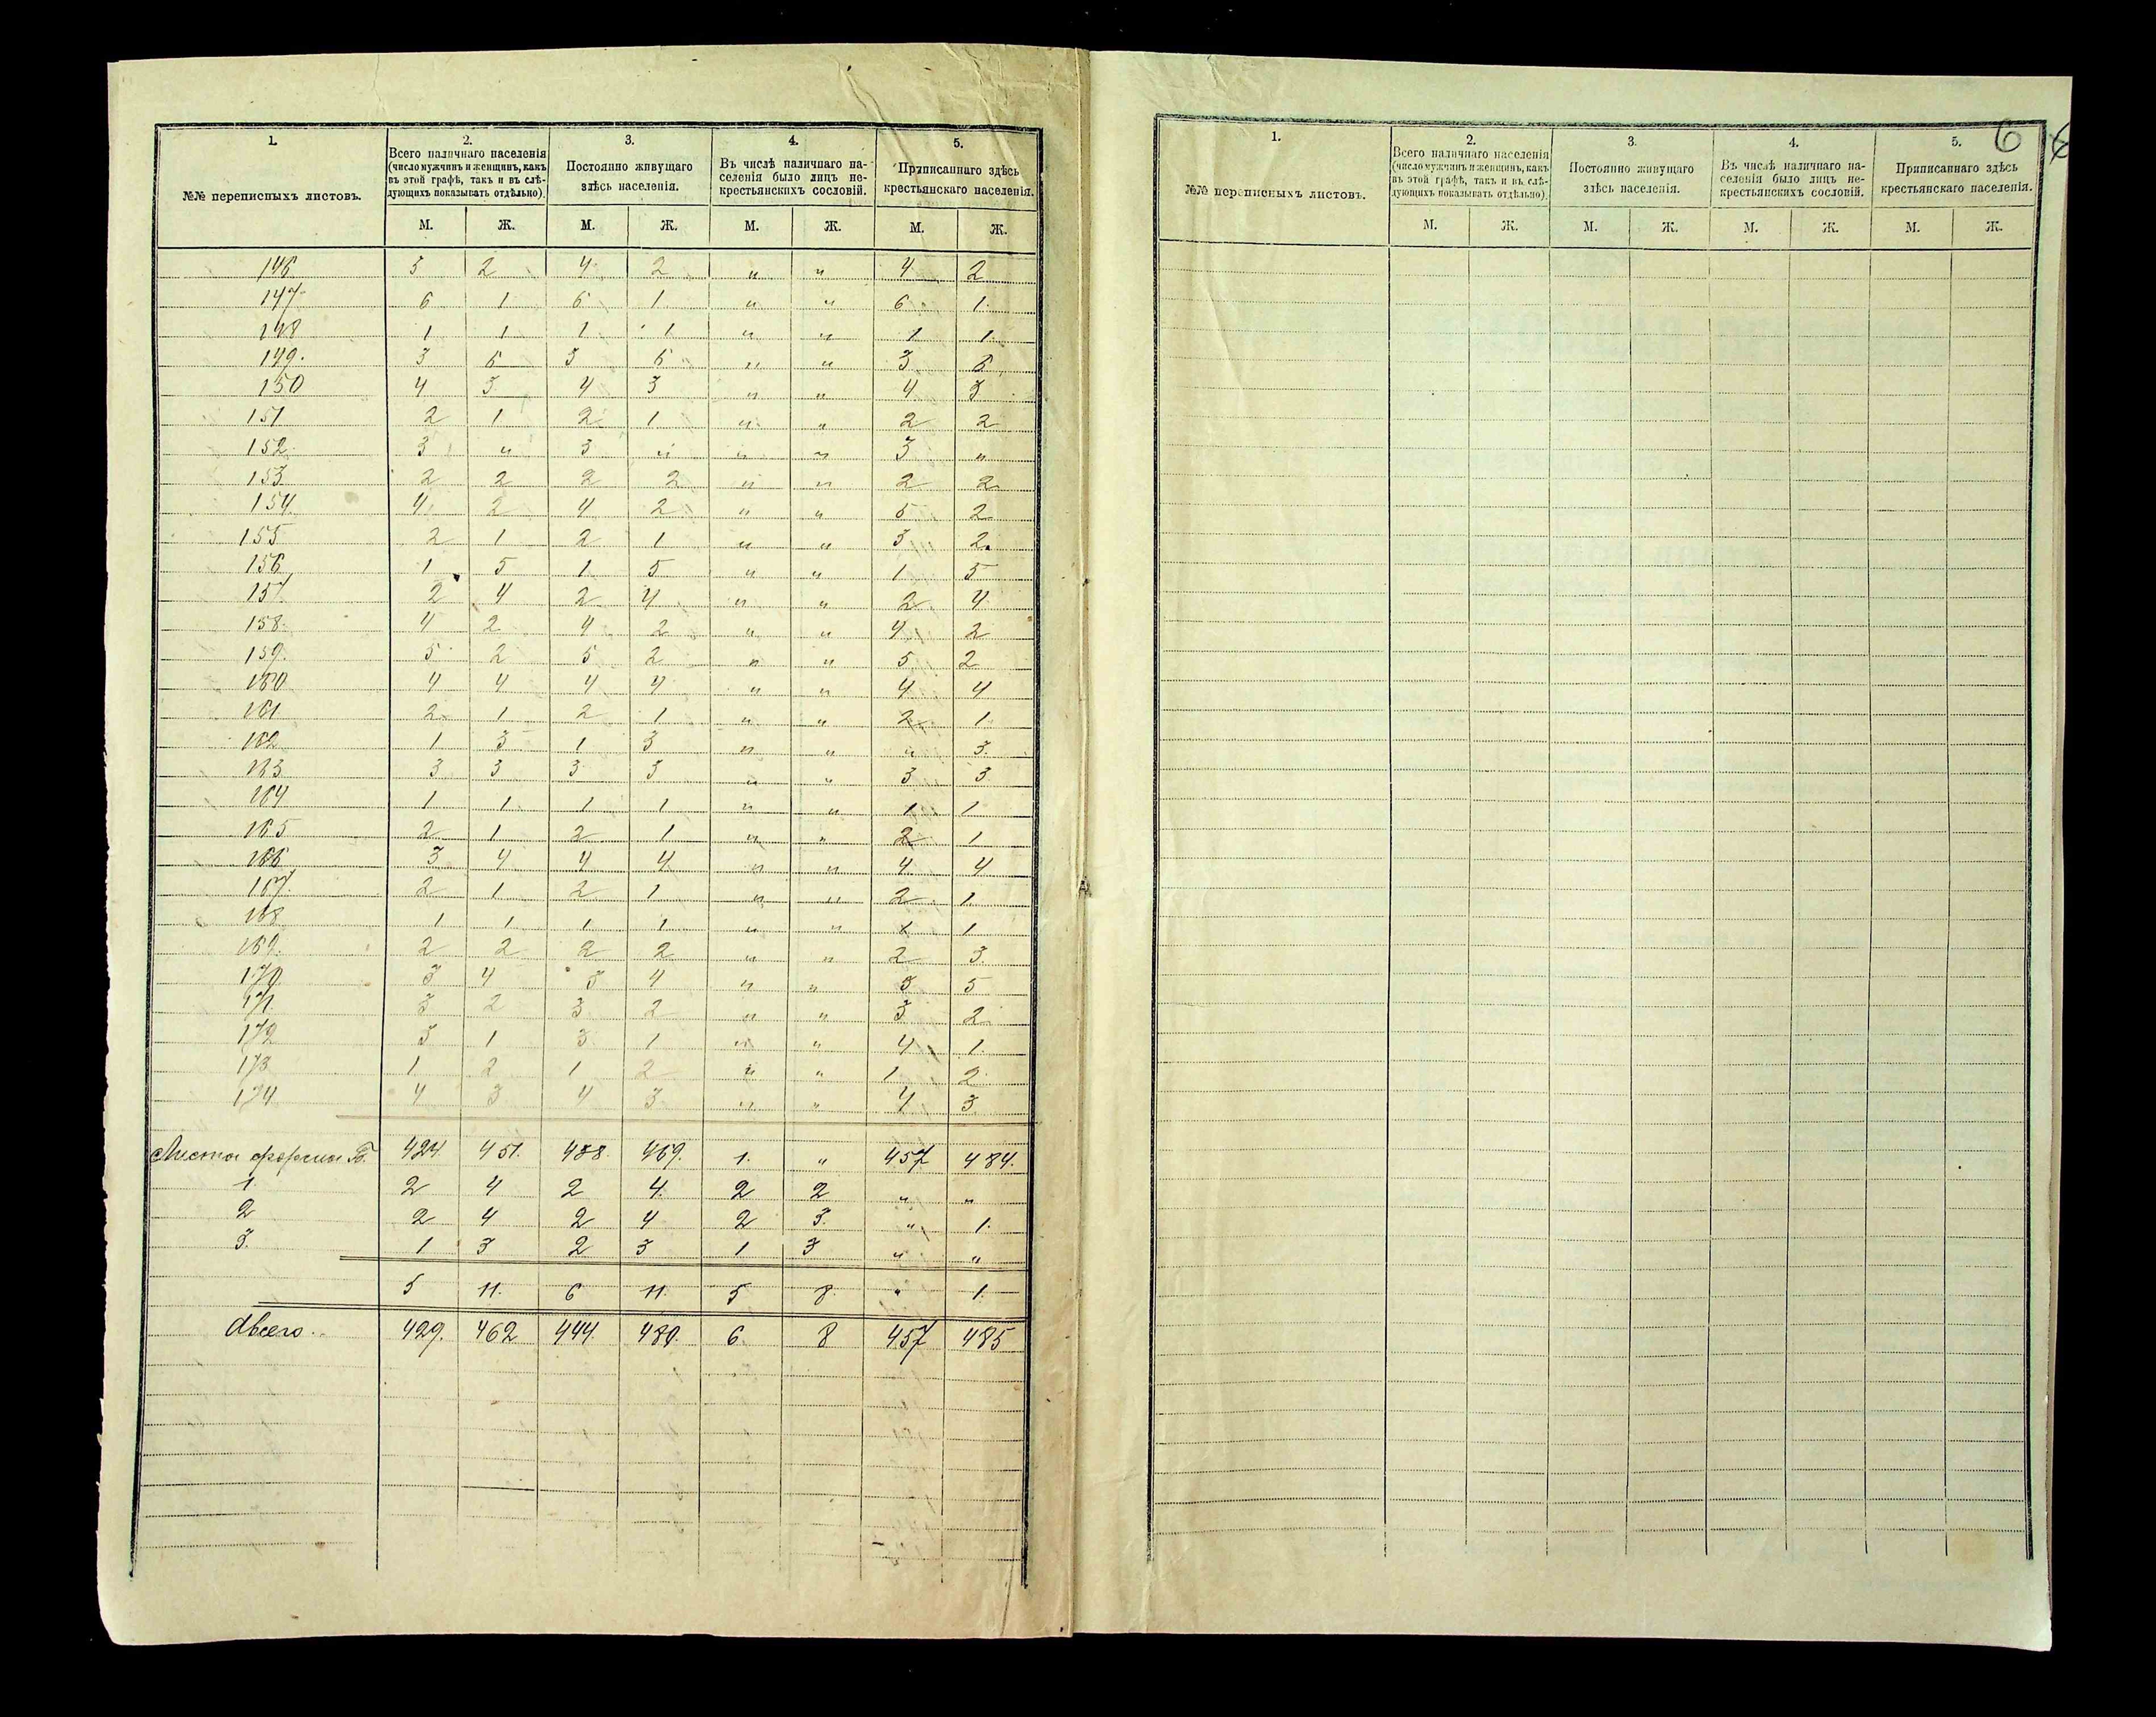 1.
№№ переписныхъ листовъ.
2.
Всего наличнаго населенія
(число мужчинъ и женщинъ, какъ
въ этой графѣ, такъ и въ слѣ-
дующихъ показывать отдѣльно).
3.
Постоянно живущаго
здѣсь населенія.
4.
Въ числѣ наличнаго на-
селенія было лицъ не-
крестьянскихъ сословій.
5.
Приписаннаго здѣсь
крестьянскаго населенія.
М. Ж. М. Ж. М. Ж. М. Ж.
146 5 2 4 2 " " 4 2
147 6 1 6 1 " " 6 1
148 1 1 1 1 " " 1 1
149. 3 6 3 6 " " 3 6
150 4 3 4 3 " " 4 3
151 2 1 2 1 " " 2 2
152 3 " 3 " " " 3 "
153 2 2 2 2 " " 2 2
154 4 2 4 2 " " 5 2
155 2 1 2 1 " " 3 2
156 1 5 1 5 " " 1 5
157 2 4 2 4 " " 2 4
158 4 2 4 2 " " 4 2
159. 5 2 5 2 " " 5 2
160 4 4 4 4 " " 4 4
161 2 1 2 1 " " 2 1
162 1 3 1 3 " " " 3
163 3 3 3 3 " " 3 3
164 1 1 1 1 " " 1 1
165 2 1 2 1 " " 2 1
166 3 4 4 4 " " 4 4
167 2 1 2 1 " " 2 1
168 1 1 1 1 " " 1
169. 2 2 2 2 " " 2 3
170 3 4 3 4 " " 3 5
171 3 2 3 2 " " 3 2
172 3 1 3 1 " " 4 1
173 1 2 1 2 " " 1 2
174 4 3 4 3 " " 4 3
Листы формы Б. 424 451. 438 469. 1. " 457 484.
1. 2 4 2 4 2 2 " "
2 2 4 2 4 2 3 " 1.
3. 1 3 2 3 1 3 " "
5 11. 6 11. 5 8 " 1.
Авсего. 429. 462 444 480. 6 8 457 485
6
1.
№№ переписныхъ листовъ.
2.
Всего наличнаго населенія
(число мужчинъ и женщинъ, какъ
въ этой графѣ, такъ и въ слѣ-
дующихъ показывать отдѣльно).
3.
Постоянно живущаго
здѣсь населенія.
4.
Въ числѣ наличнаго на-
селенія было лицъ не-
крестьянскихъ сословій.
5.
Приписаннаго здѣсь
крестьянскаго населенія.
М. Ж. М. Ж. М. Ж. М. Ж.